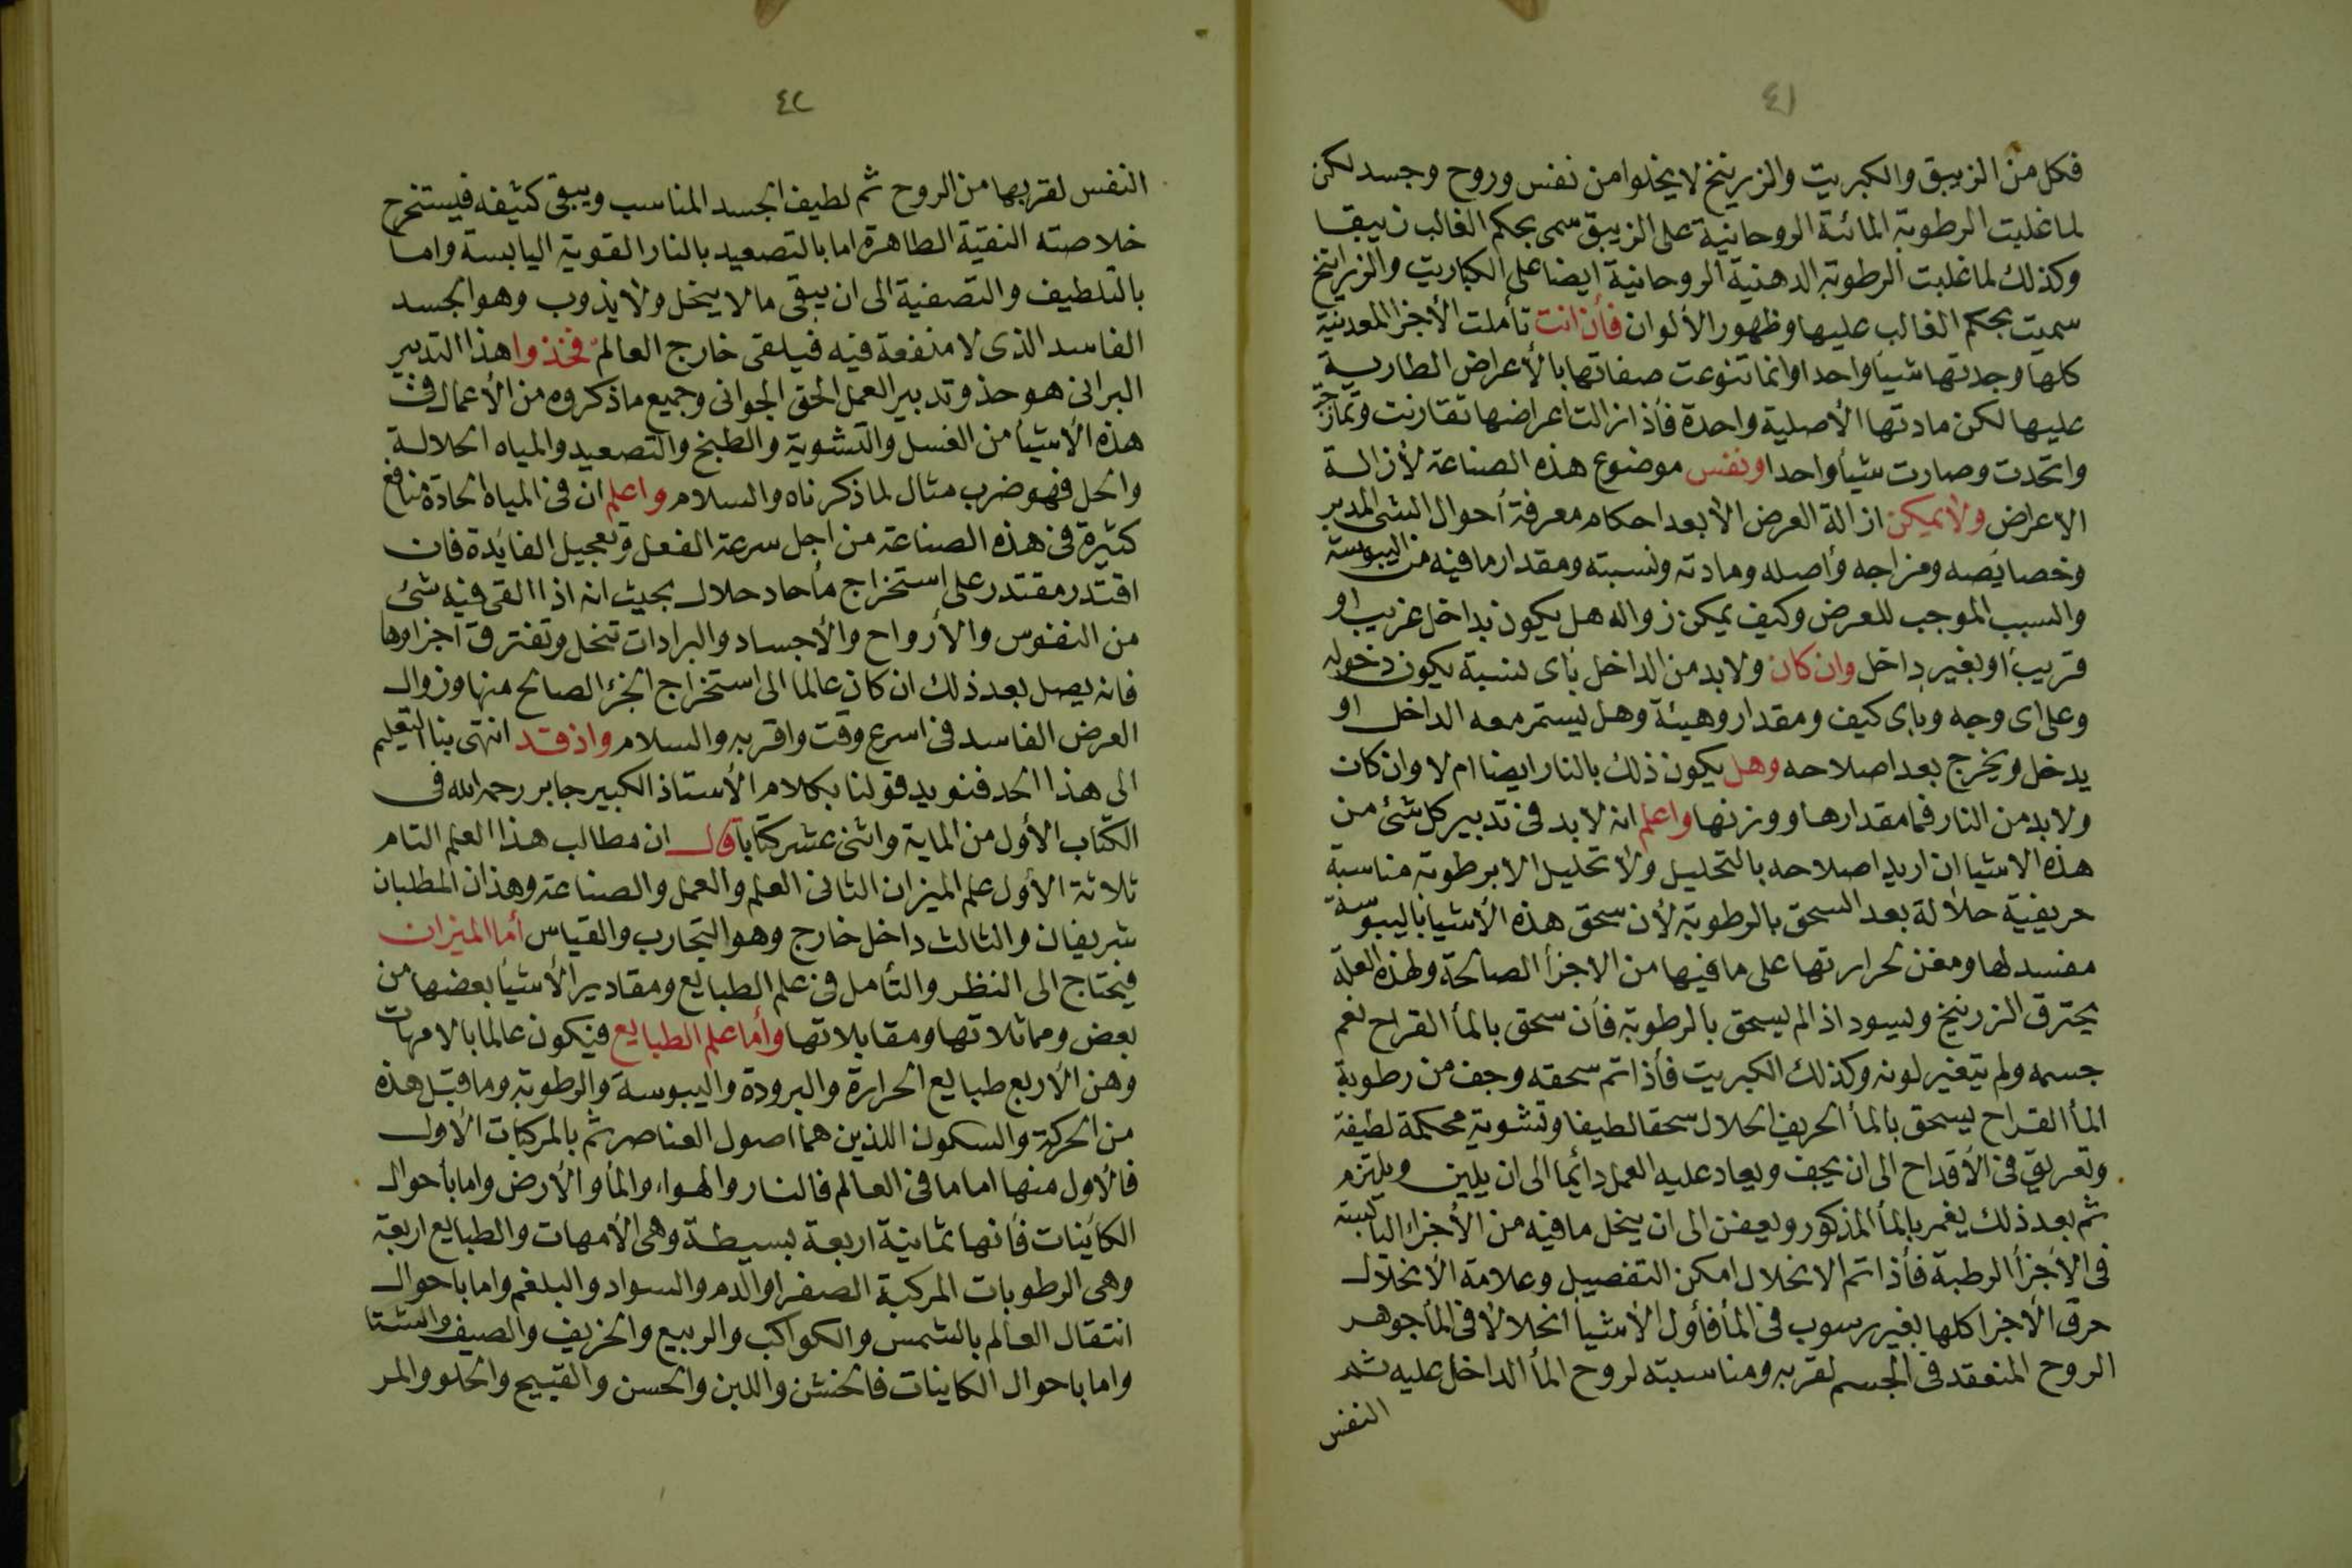 ٤١
فكل من الزيبق والكبريت والزرينخ لا يخلوا من نفس وروح وجسد لكن
لما غلبت الرطوبة المائة الروحانية على الزيبق سمى بحكم الغالب زيبقا
وكذلك لما غلبت الرطوبة الدهنية الروحانية ايضا على الكباريت والزرانيخ
سميت بحكم الغالب عليها وظهور الألوان فأن انت تأملت الأجزا المعدنية
كلها وجدتها شيأ واحدا وانما تنوعت صفاتها بالأعراض الطارية
عليها لكن مادتها الأصلية واحدة فأذا زالت اعراضها تقارنت وتمازجت
واتحدت وصارت شيأ واحدا ونفس موضوع هذه الصناعة لأزالة
الاعراض ولا يمكن ازالة العرض الا بعد احكام معرفة أحوال الشى المدبر
وخصايصه ومزاجه وأصله ومادته ونسبته ومقدار ما فيه من اليبوسة
والسبب الموجب للعرض وكيف يمكن زواله هل يكون بداخل غريب او
قريب أو بغير داخل وان كان ولا بد من الداخل بأى نسبة يكون دخوله
وعلى اى وجه وبأى كيف ومقدار وهيئة وهل يستمر معه الداخل او
يدخل ويخرج بعد اصلاحه وهل يكون ذلك بالنار ايضا ام لا وان كان
ولا بد من النار فما مقدارها ووزنها واعلم انه لا بد فى تدبير كل شئ من
هذه الاشيا ان اريد اصلاحه بالتحليل ولا تحليل الا برطوبة مناسبة
حريفية حلالة بعد السحق بالرطوبة لأن سحق هذه الأشيا باليبوسة
مفسد لها ومفن لحرارتها على ما فيها من الاجزأ الصالحة ولهذه العلة
يحترق الزرنيخ ويسود اذا لم يسحق بالرطوبة فأن سحق بالمأ القراح نعم
جسمه ولم يتغير لونه وكذلك الكبريت فأذا تم سحقه وجف من رطوبة
المأ القراح يسحق بالمأ الحريف الحلال سحقا لطيفا وتشوية محكمة لطيفة
وتعريق فى الأقداح الى ان يجف ويعاد عليه العمل دائما الى ان يلين ويلتزم
ثم بعد ذلك يغمر بالمأ المذكور ويعفن الى ان ينحل ما فيه من الأجزاء اليابسة
فى الأجزأ الرطبة فأذا تم الانحلال امكن التفصيل وعلامة الأنحلال
خرق الأجزا كلها بغير رسوب فى المأ فأول الأشيأ انحلالا فى المأ جوهر
الروح المنعقد فى الجسم لقربه ومناسبته لروح المأ الداخل عليه ثم
النفس
٤٢
النفس لقربها من الروح ثم لطيف الجسد المناسب ويبقى كثيفه فيستخرج
خلاصته النقية الطاهرة اما بالتصعيد بالنار القوية اليابسة واما
بالتلطيف والتصفية الى ان يبقى ما لا ينحل ولا يذوب وهو الجسد
الفاسد الذى لا منفعة فيه فيلقى خارج العالم فخذوا هذا التدبير
البرانى هو حذو تدبير العمل الحق الجوانى وجميع ما ذكروه من الأعمال فى
هذه الأشيأ من الغسل والتشوية والطبخ والتصعيد والمياه الحلالة
والحل فهو ضرب مثال لما ذكرناه والسلام واعلم ان فى المياه الحادة منافع
كثيرة فى هذه الصناعة من اجل سرعة الفعل وتعجيل الفايدة فان
اقتدر مقتدر على استخراج مأ حاد حلال بحيث انه اذا القى فيه شئ
من النفوس والأرواح والأجساد والبرادات تنحل وتفترق اجزاوها
فانه يصل بعد ذلك ان كان عالما الى استخراج الجزء الصالح منها وزوال
العرض الفاسد فى اسرع وقت واقربه والسلام واذ قد انتهى بنا التعليم
الى هذا الحد فنويد قولنا بكلام الأستاذ الكبير جابر رحمه الله فى
الكتاب الأول من الماية واثنى عشر كتابا قال ان مطالب هذا العلم التام
ثلاثة الأول علم الميزان الثانى العلم والعمل والصناعة وهذان المطلبان
شريفان والثالث داخل خارج وهو التجارب والقياس أما الميزان
فيحتاج الى النظر والتأمل فى علم الطبايع ومقادير الأشيأ بعضها من
بعض ومماثلاتها ومقابلاتها وأما علم الطبايع فيكون عالما بالامهات
وهن الأربع طبايع الحرارة والبرودة واليبوسة والرطوبة وما قبل هذه
من الحركة والسكون اللذين هما اصول العناصر ثم بالمركبات الأول
فالأول منها اما ما فى العالم فالنار والهواء والمأ والأرض واما بأحوال
الكأينات فأنها ثمانية اربعة بسيطة وهى الأمهات والطبايع اربعة
وهى الرطوبات المركبة الصفرا والدم والسواد والبلغم واما باحوال
انتقال العالم بالشمس والكواكب والربيع والخريف والصيف والشتا
واما باحوال الكاينات فالخشن واللين والحسن والقبيح والحلو والمر